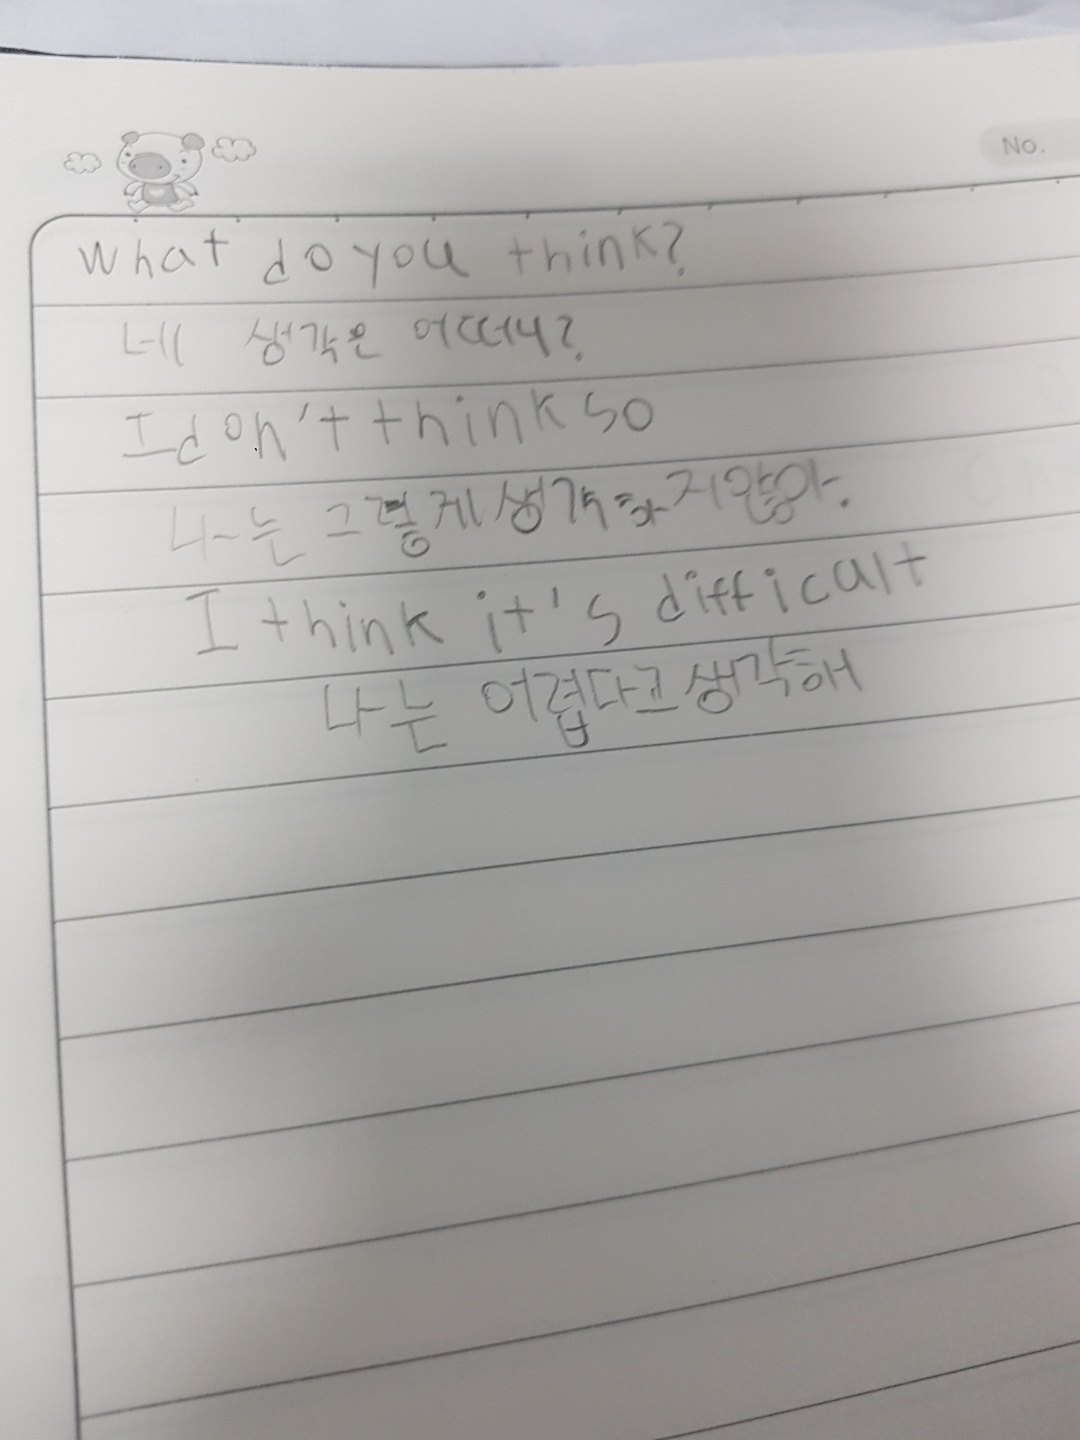 No.
What do you think?
네 생각은 어떠냐?
I don't think so
나는 그렇게 생각하지않아.
I think it's difficalt
나는 어렵다고 생각해